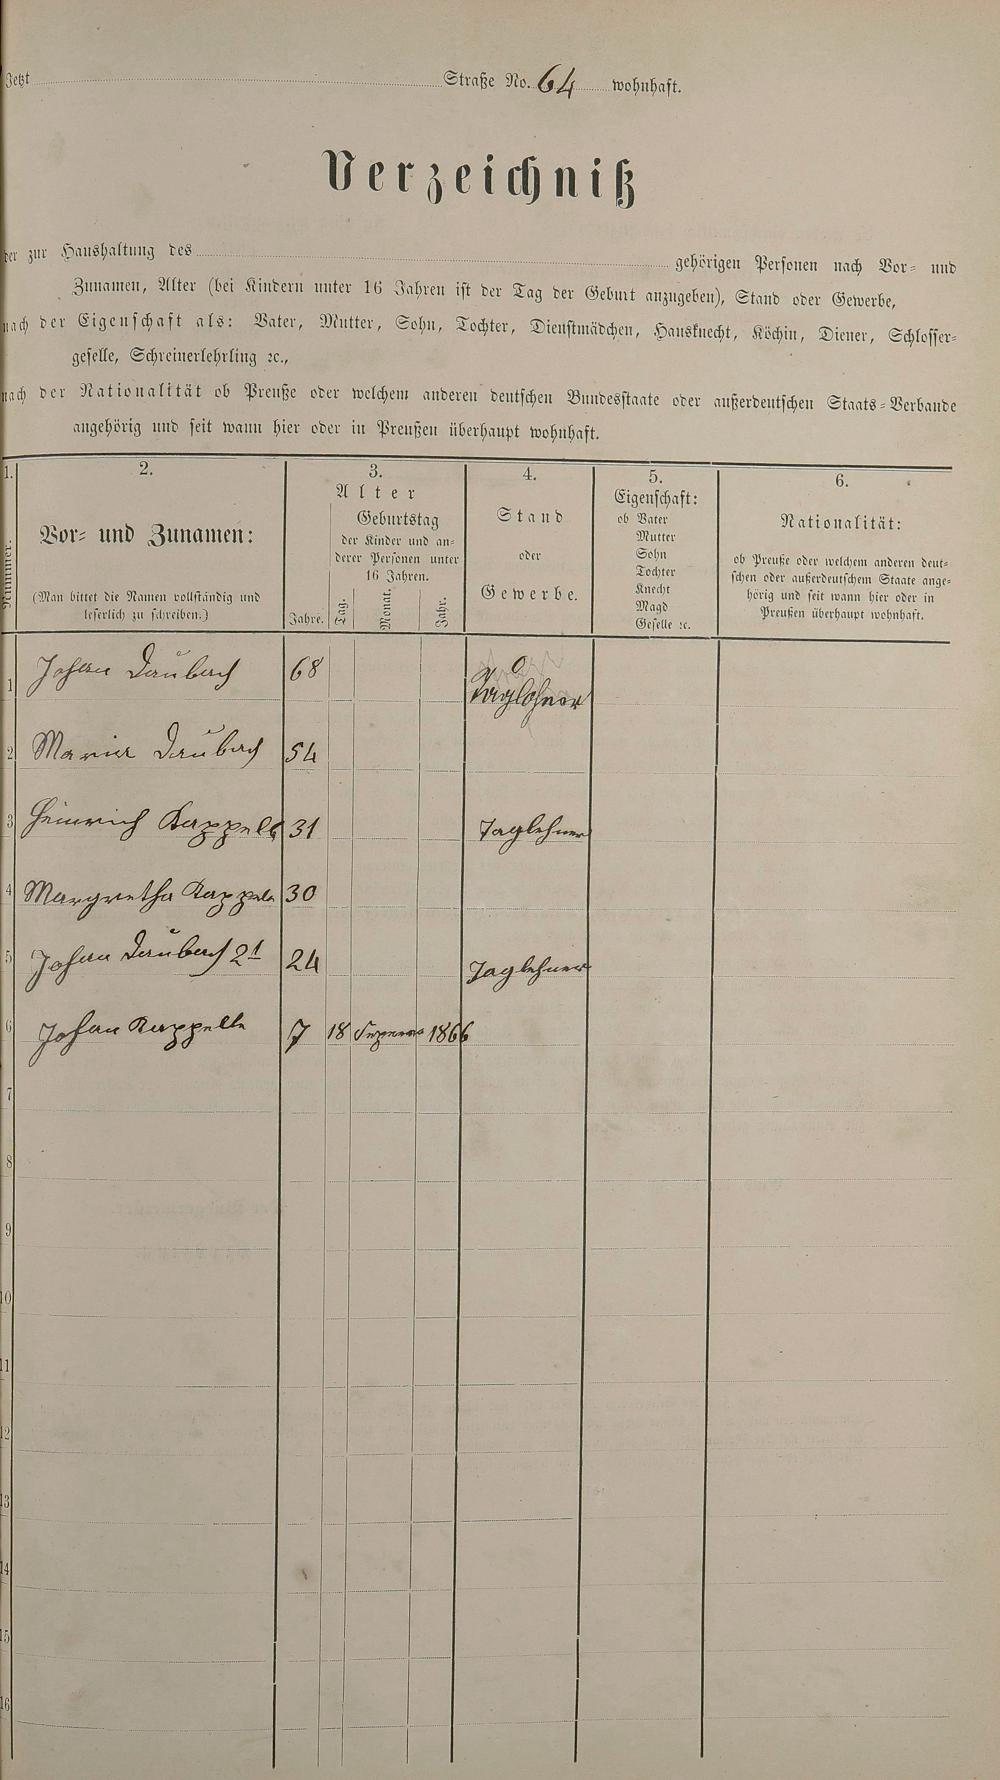 Jetzt Straße No. 64 wohnhaft.
Verzeichniß
der zur Haushaltung des gehörigen Personen nach Vor- und
Zunamen, Alter (bei Kindern unter 16 Jahren ist der Tag der Geburt anzugeben), Stand oder Gewerbe,
nach der Eigenschaft als: Vater, Mutter, Sohn, Tochter, Dienstmädchen, Hausknecht, Köchin, Diener, Schlosser-
geselle, Schreinerlehrling ꝛc.,
nach der Nationalität ob Preuße oder welchem anderen deutschen Bundesstaate oder außerdeutschen Staats-Verbande
angehörig und seit wann hier oder in Preußen überhaupt wohnhaft.
1.
Nummer.
2.
Vor- und Zunamen:
(Man bittet die Namen vollständig und
leserlich zu schreiben.)
3.
Alter
Geburtstag
der Kinder und an-
derer Personen unter
16 Jahren.
Jahre. Tag. Monat. Jahr.
4.
Stand
oder
Gewerbe.
5.
Eigenschaft:
ob Vater
Mutter
Sohn
Tochter
Knecht
Magd
Geselle ꝛc.
6.
Nationalität:
ob Preuße oder welchem anderen deut-
schen oder außerdeutschem Staate ange-
hörig und seit wann hier oder in
Preußen überhaupt wohnhaft.
1 Johan Daubach 68 Taglohner
2 Maria Daubach 54
3 Heinrich Kappelle 31 Taglehner
4 Margretha Kappele 30
5 Johan Daubach 2t 24 Taglehner
6 Johan Kappelle 7 18 1866
7
8
9
10
11
12
13
14
15
16